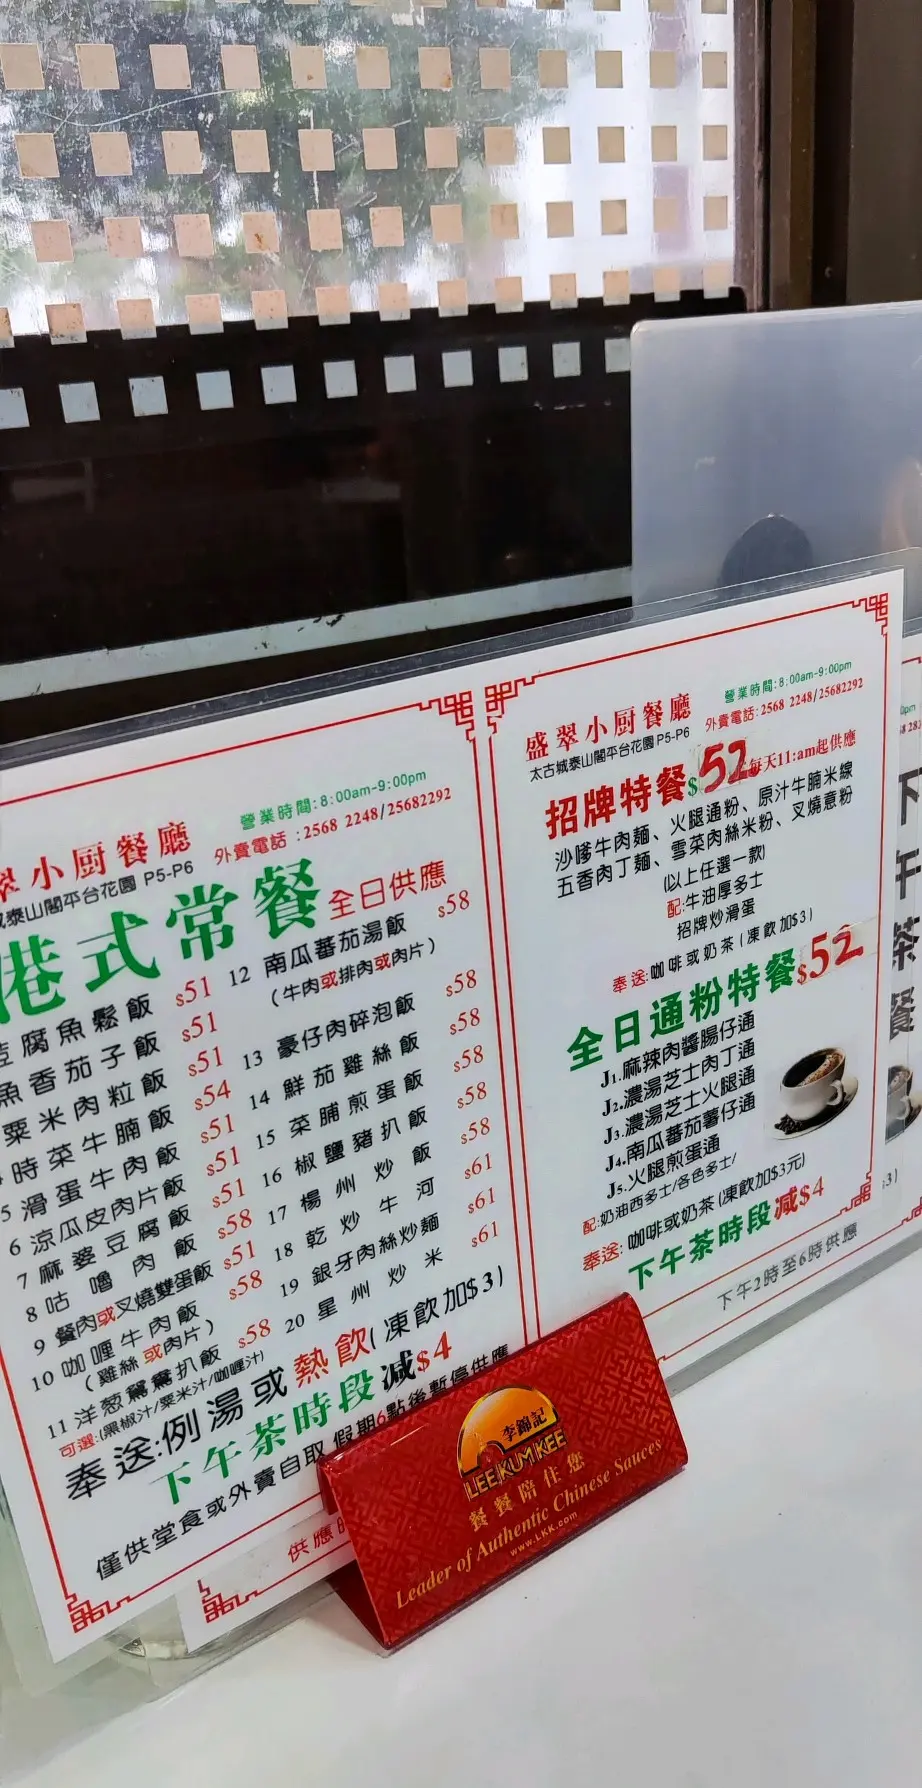 翠小厨餐廳
營業時間:8:00am-9:00pm
泰山閣平台花園 P5-P6
外賣電話:2568 2248/25682292
港式常餐 全日供應
腐魚鬆飯 $51
魚香茄子飯 $51
粟米肉粒飯 $51
時菜牛腩飯 $54
5 滑蛋牛肉飯 $51
6 涼瓜皮肉片飯 $51
7 麻婆豆腐飯 $51
8 咕嚕肉飯 $58
9 餐肉或叉燒雙蛋飯 $51
10 咖喱牛肉飯 $58
(雞絲或肉片)
11 洋葱鴛鴦扒飯 $58
可選:(黑椒汁/粟米汁/咖喱汁)
12 南瓜蕃茄湯飯 $58
(牛肉或排肉或肉片)
13 豪仔肉碎泡飯 $58
14 鮮茄雞絲飯 $58
15 菜脯煎蛋飯 $58
16 椒鹽豬扒飯 $58
17 楊州炒飯 $58
18 乾炒牛河 $61
19 銀牙肉絲炒麵 $61
20 星州炒米 $61
奉送:例湯或熱飲(凍飲加$3)
下午茶時段減$4
僅供堂食或外賣自取 假期6點後暫停供應
供應
盛翠小厨餐廳
營業時間:8:00am-9:00pm
太古城泰山閣平台花園 P5-P6
外賣電話:2568 2248/25682292
招牌特餐$52 每天11:am起供應
沙嗲牛肉麵、火腿通粉、原汁牛腩米線
五香肉丁麵、雪菜肉絲米粉、叉燒意粉
(以上任選一款)
配:牛油厚多士
招牌炒滑蛋
奉送:咖啡或奶茶(凍飲加$3)
全日通粉特餐$52
J1.麻辣肉醬腸仔通
J2.濃湯芝士肉丁通
J3.濃湯芝士火腿通
J4.南瓜蕃茄薯仔通
J5.火腿煎蛋通
配:奶油西多士/各色多士/
奉送:咖啡或奶茶(凍飲加$3元)
下午茶時段減$4
下午2時至6時供應
午
茶
餐
李錦記
LEE KUM KEE
餐餐陪住您
Leader of Authentic Chinese Sauces
www.LKK.com